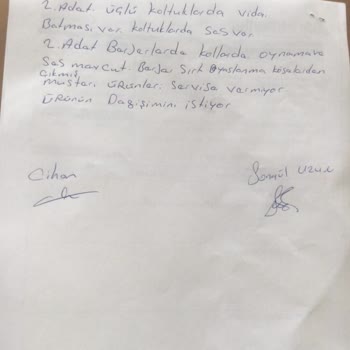 2. Adat üçlü koltuklarda vida
Batması var. koltuklarda Ses var
2. Adat Barjerlarda kollarda oynama ve
Ses mavcut. Barjar Sırt yaslanma köşalardan
Çıkmış
müşteri ürünleri Servise vermiyor
ürünün Dağişimini istiyor
Cihan
Uzun